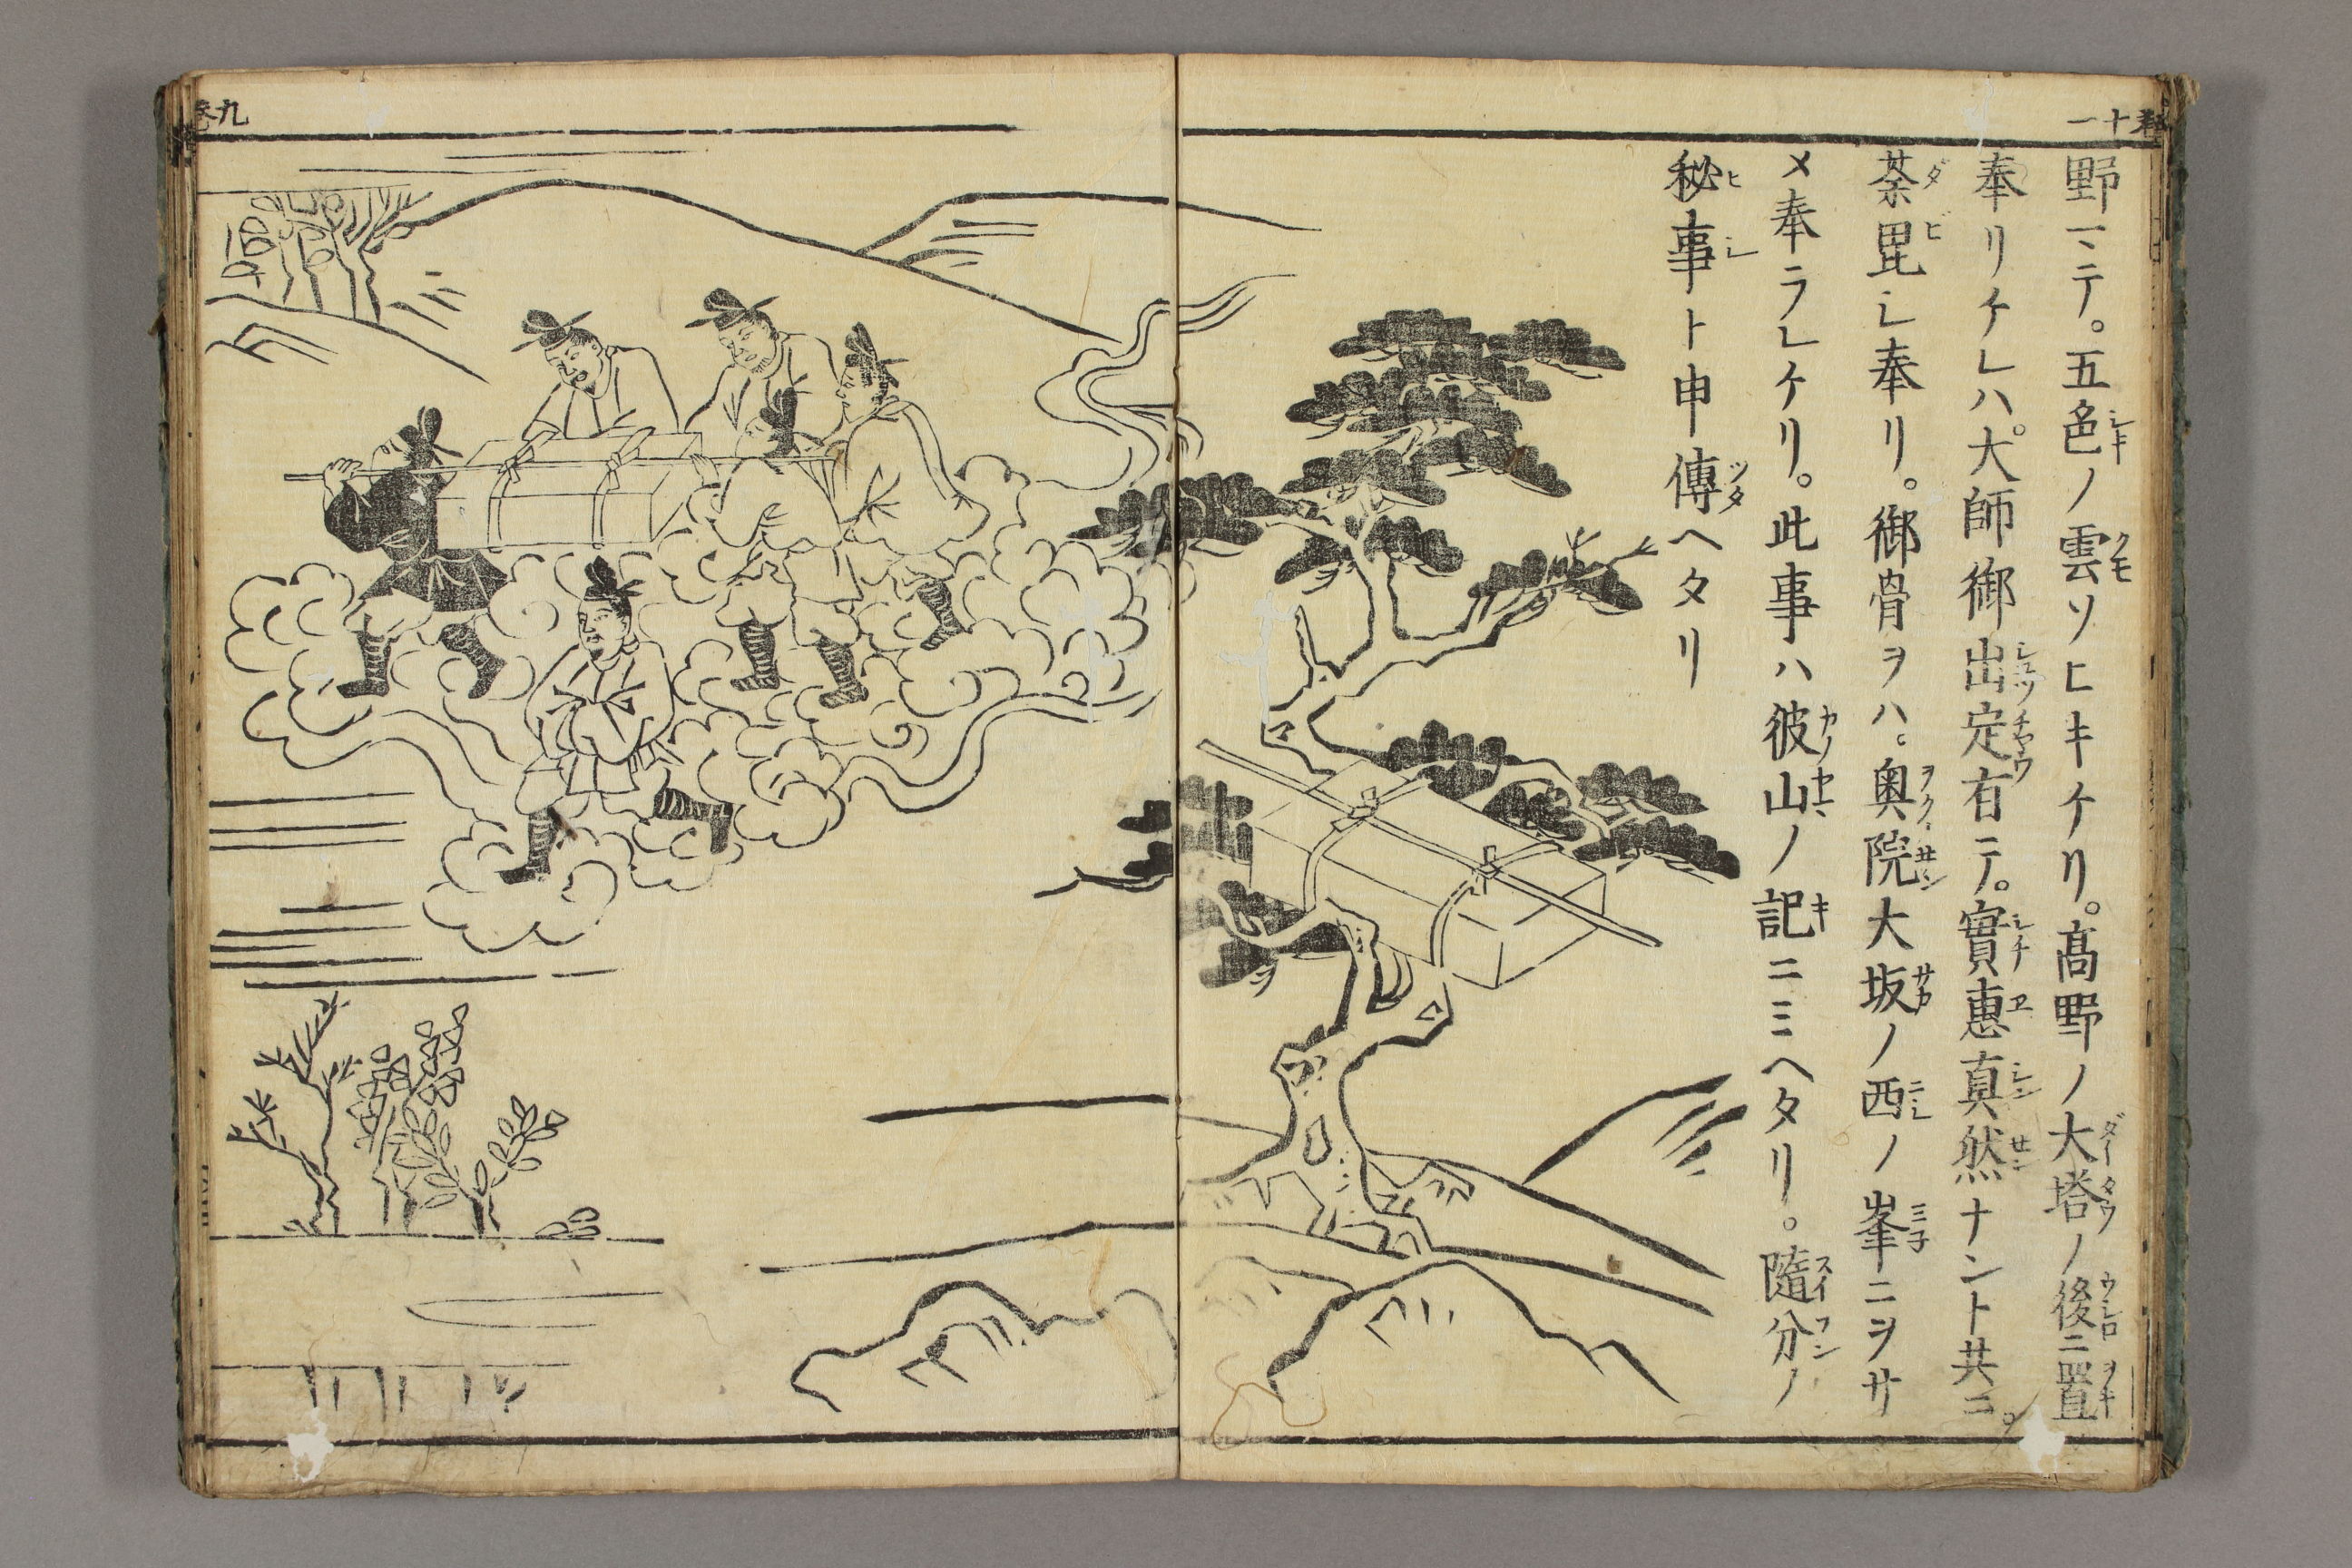 野ニテ。五色ノ雲ソヒキケリ。高野ノ大塔ノ後ニ置
奉リケレハ。大師御出定有テ。實惠真然ナント共ニ。
荼毘シ奉リ。御骨ヲハ。奥院大坂ノ西ノ峯ニヲサ
メ奉ラレケリ。此事ハ彼山ノ記ニミヘタリ。隨分ノ
秘事ト申傳ヘタリ